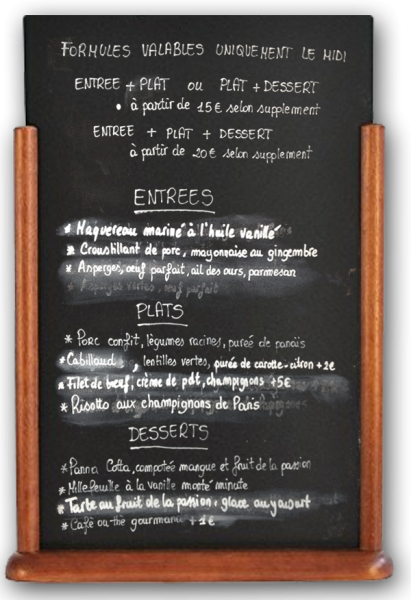 FORMULES VALABLES UNIQUEMENT LE MIDI
ENTREE + PLAT OU PLAT + DESSERT
• à partir de 15€ selon supplement
ENTREE + PLAT + DESSERT
à partir de 20€ selon supplement
ENTREES
* Maquereau mariné à l'huile vanillé
* Croustillant de porc, mayonnaise au gingembre
* Asperges, oeuf parfait, ail des ours, parmesan
* Asperges vertes, oeuf parfait
PLATS
* Porc confit, légumes racines, purée de panais
* Cabillaud, lentilles vertes, purée de carotte-citron +2€
* Filet de bœuf, crème de pdt, champignons +5€
* Risotto aux champignons de Paris
DESSERTS
* Panna Cotta, compotée mangue et fruit de la passion
* Mille feuille à la vanille monté minute
* Tarte au fruit de la passion, glace au yaourt
* Café ou thé gourmand +2€